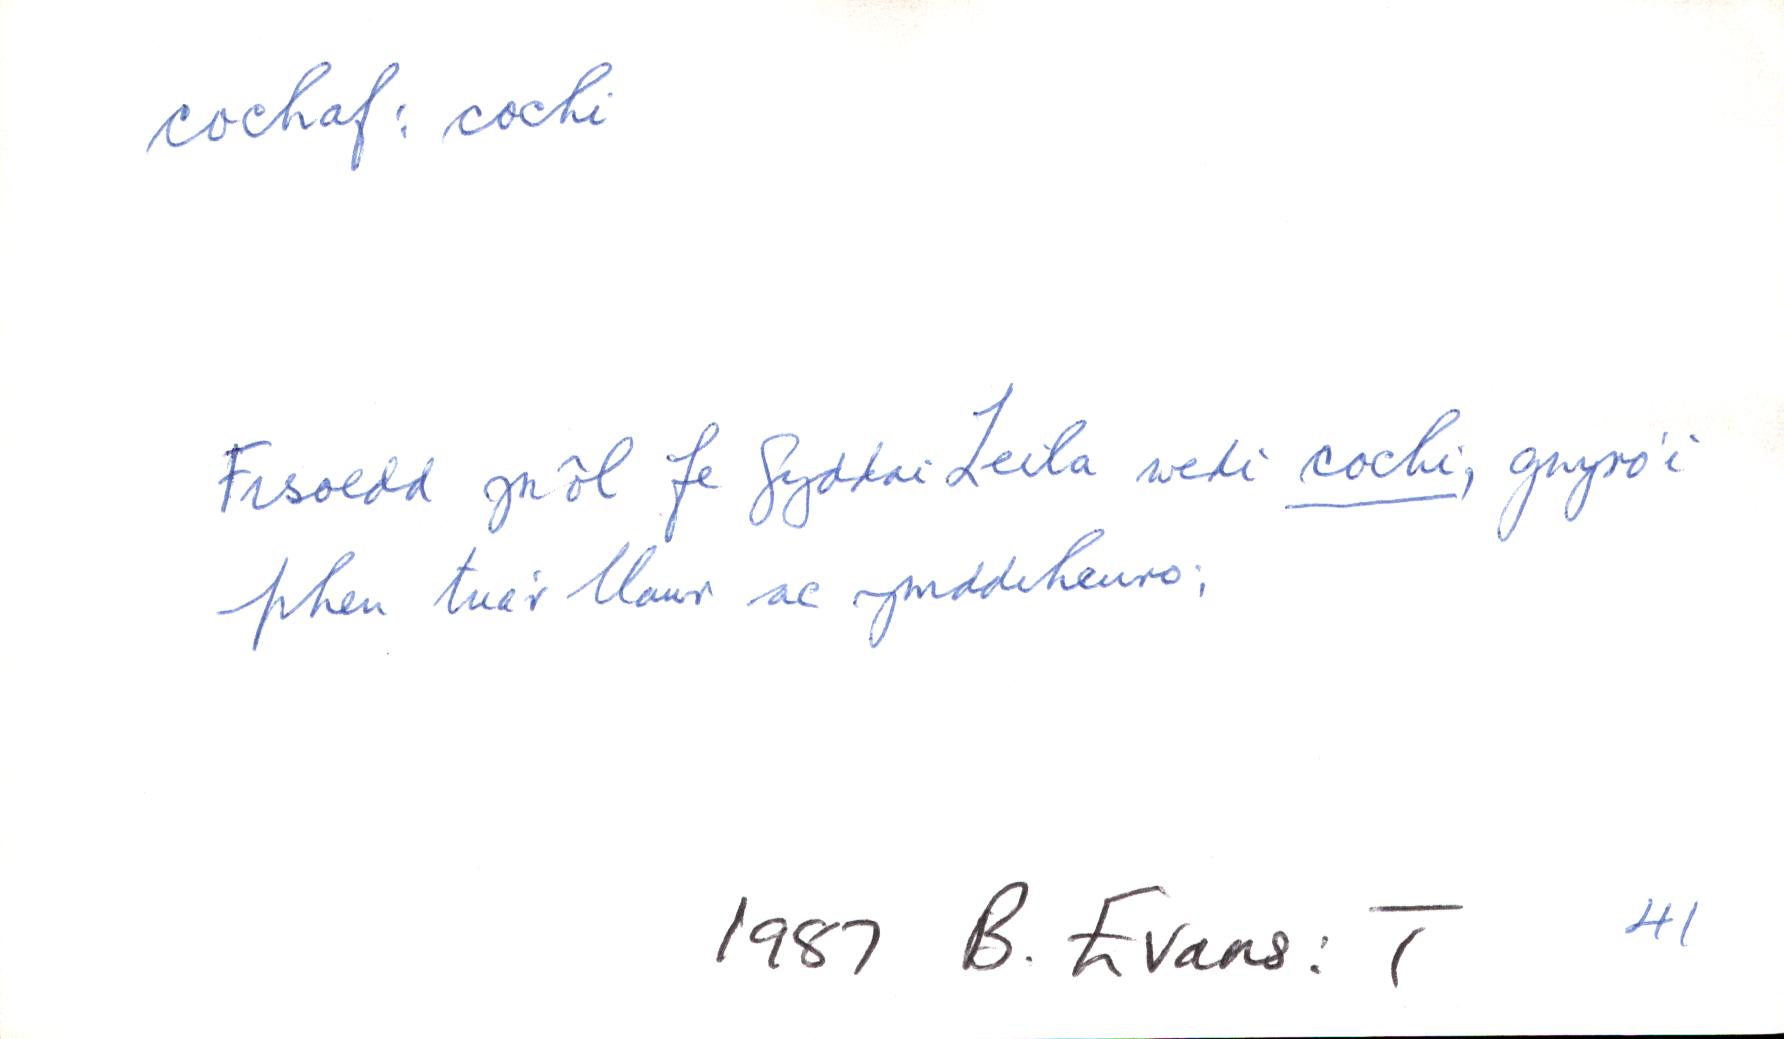 cochaf: cochi
Ersoedd yn ôl fe fyddai Leila wedi cochi, gwyro'i
phen tua'r llawr ac ymddiheuro;
1987 B. Evans: T 41